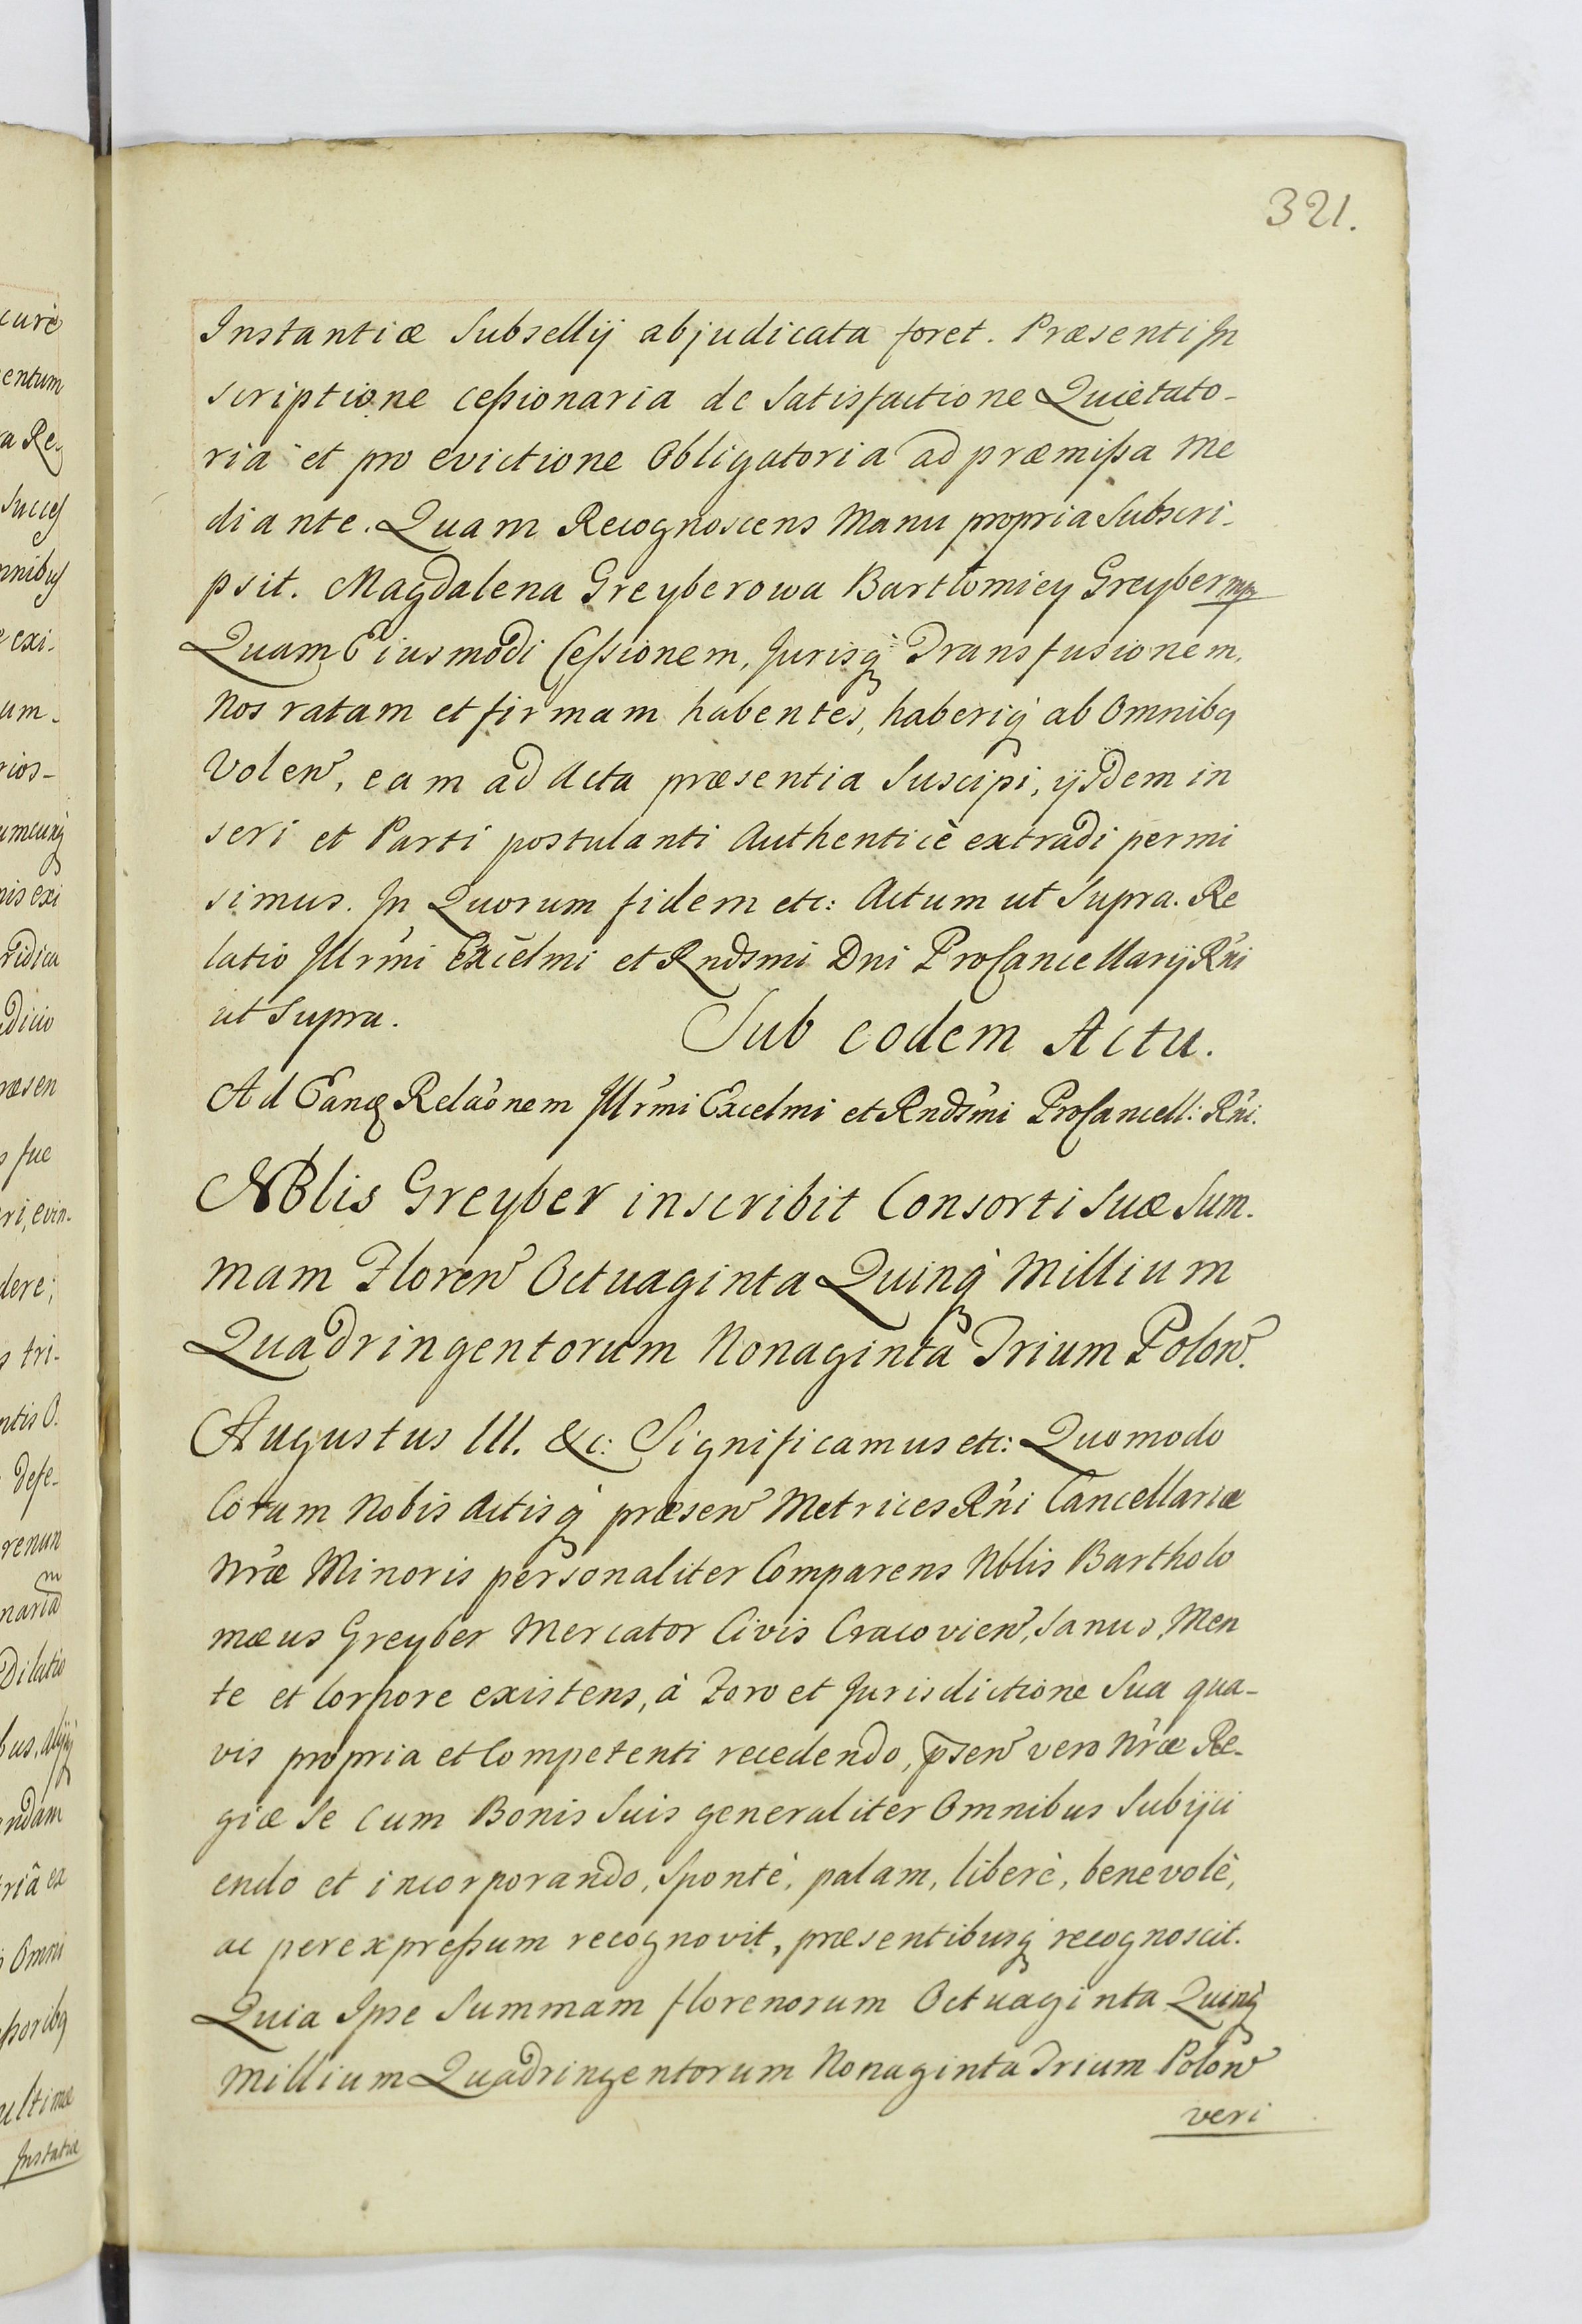 321.
Instantiæ Subsellij abjudicata foret. Præsenti In
scriptione ceßionaria de Satisfactione Quietato-
ria et pro evictione Obligatoria ad præmißa Me
diante. Quam Recognoscens Manu propria Subscri-
psit. Magdalena Greyberowa Bartłomiey Greyber mp
Quam Eiusmodi Ceßionem, Jurisq̀ Transfusionem,
Nos ratam et firmam habentes, haberiq̀ ab Omnibq
Volen, eam ad Acta præsentia Suscipi, ijsdem in
seri et Parti postulanti Authenticè extradi permi
simus. In Quorum fidem etc: Actum ut Supra. Re
latio Illrmi Excelmi et Rndsmi Dni ProCancellarij Rni
ut Supra.
Sub eodem Actu.
Ad Eanq Relaonem Illrmi Excelmi et Rndsmi ProCancell: Rni.
Nblis Greyber inscribit Consorti Suæ Sum.
mam Floren Octuaginta Quinq̀ Millium
Quadringentorum Nonaginta Trium Polon.
Augustus III. &c: Significamus etc: Quomodo
Coram Nobis Actisq̀ præsen Metrices Rni Cancellariæ
Nræ Minoris personaliter Comparens Nblis Bartholo
mæus Greyber Mercator Civis Cracovien, Sanus Men
te et Corpore existens, à Foro et Jurisdictione Sua qua-
vis propria et Competenti recedendo, p̅sen vero Nræ Re-
giæ Se Cum Bonis Suis generaliter Omnibus Subijci
endo et incorporando, Spontè, palam, liberè, benevolè,
ac per expreßum recognovit, præsentibusq̀ recognoscit.
Quia Ipse Summam florenorum Octuaginta Quinq̀
Millium Quadringentorum Nonaginta Trium Polon
veri